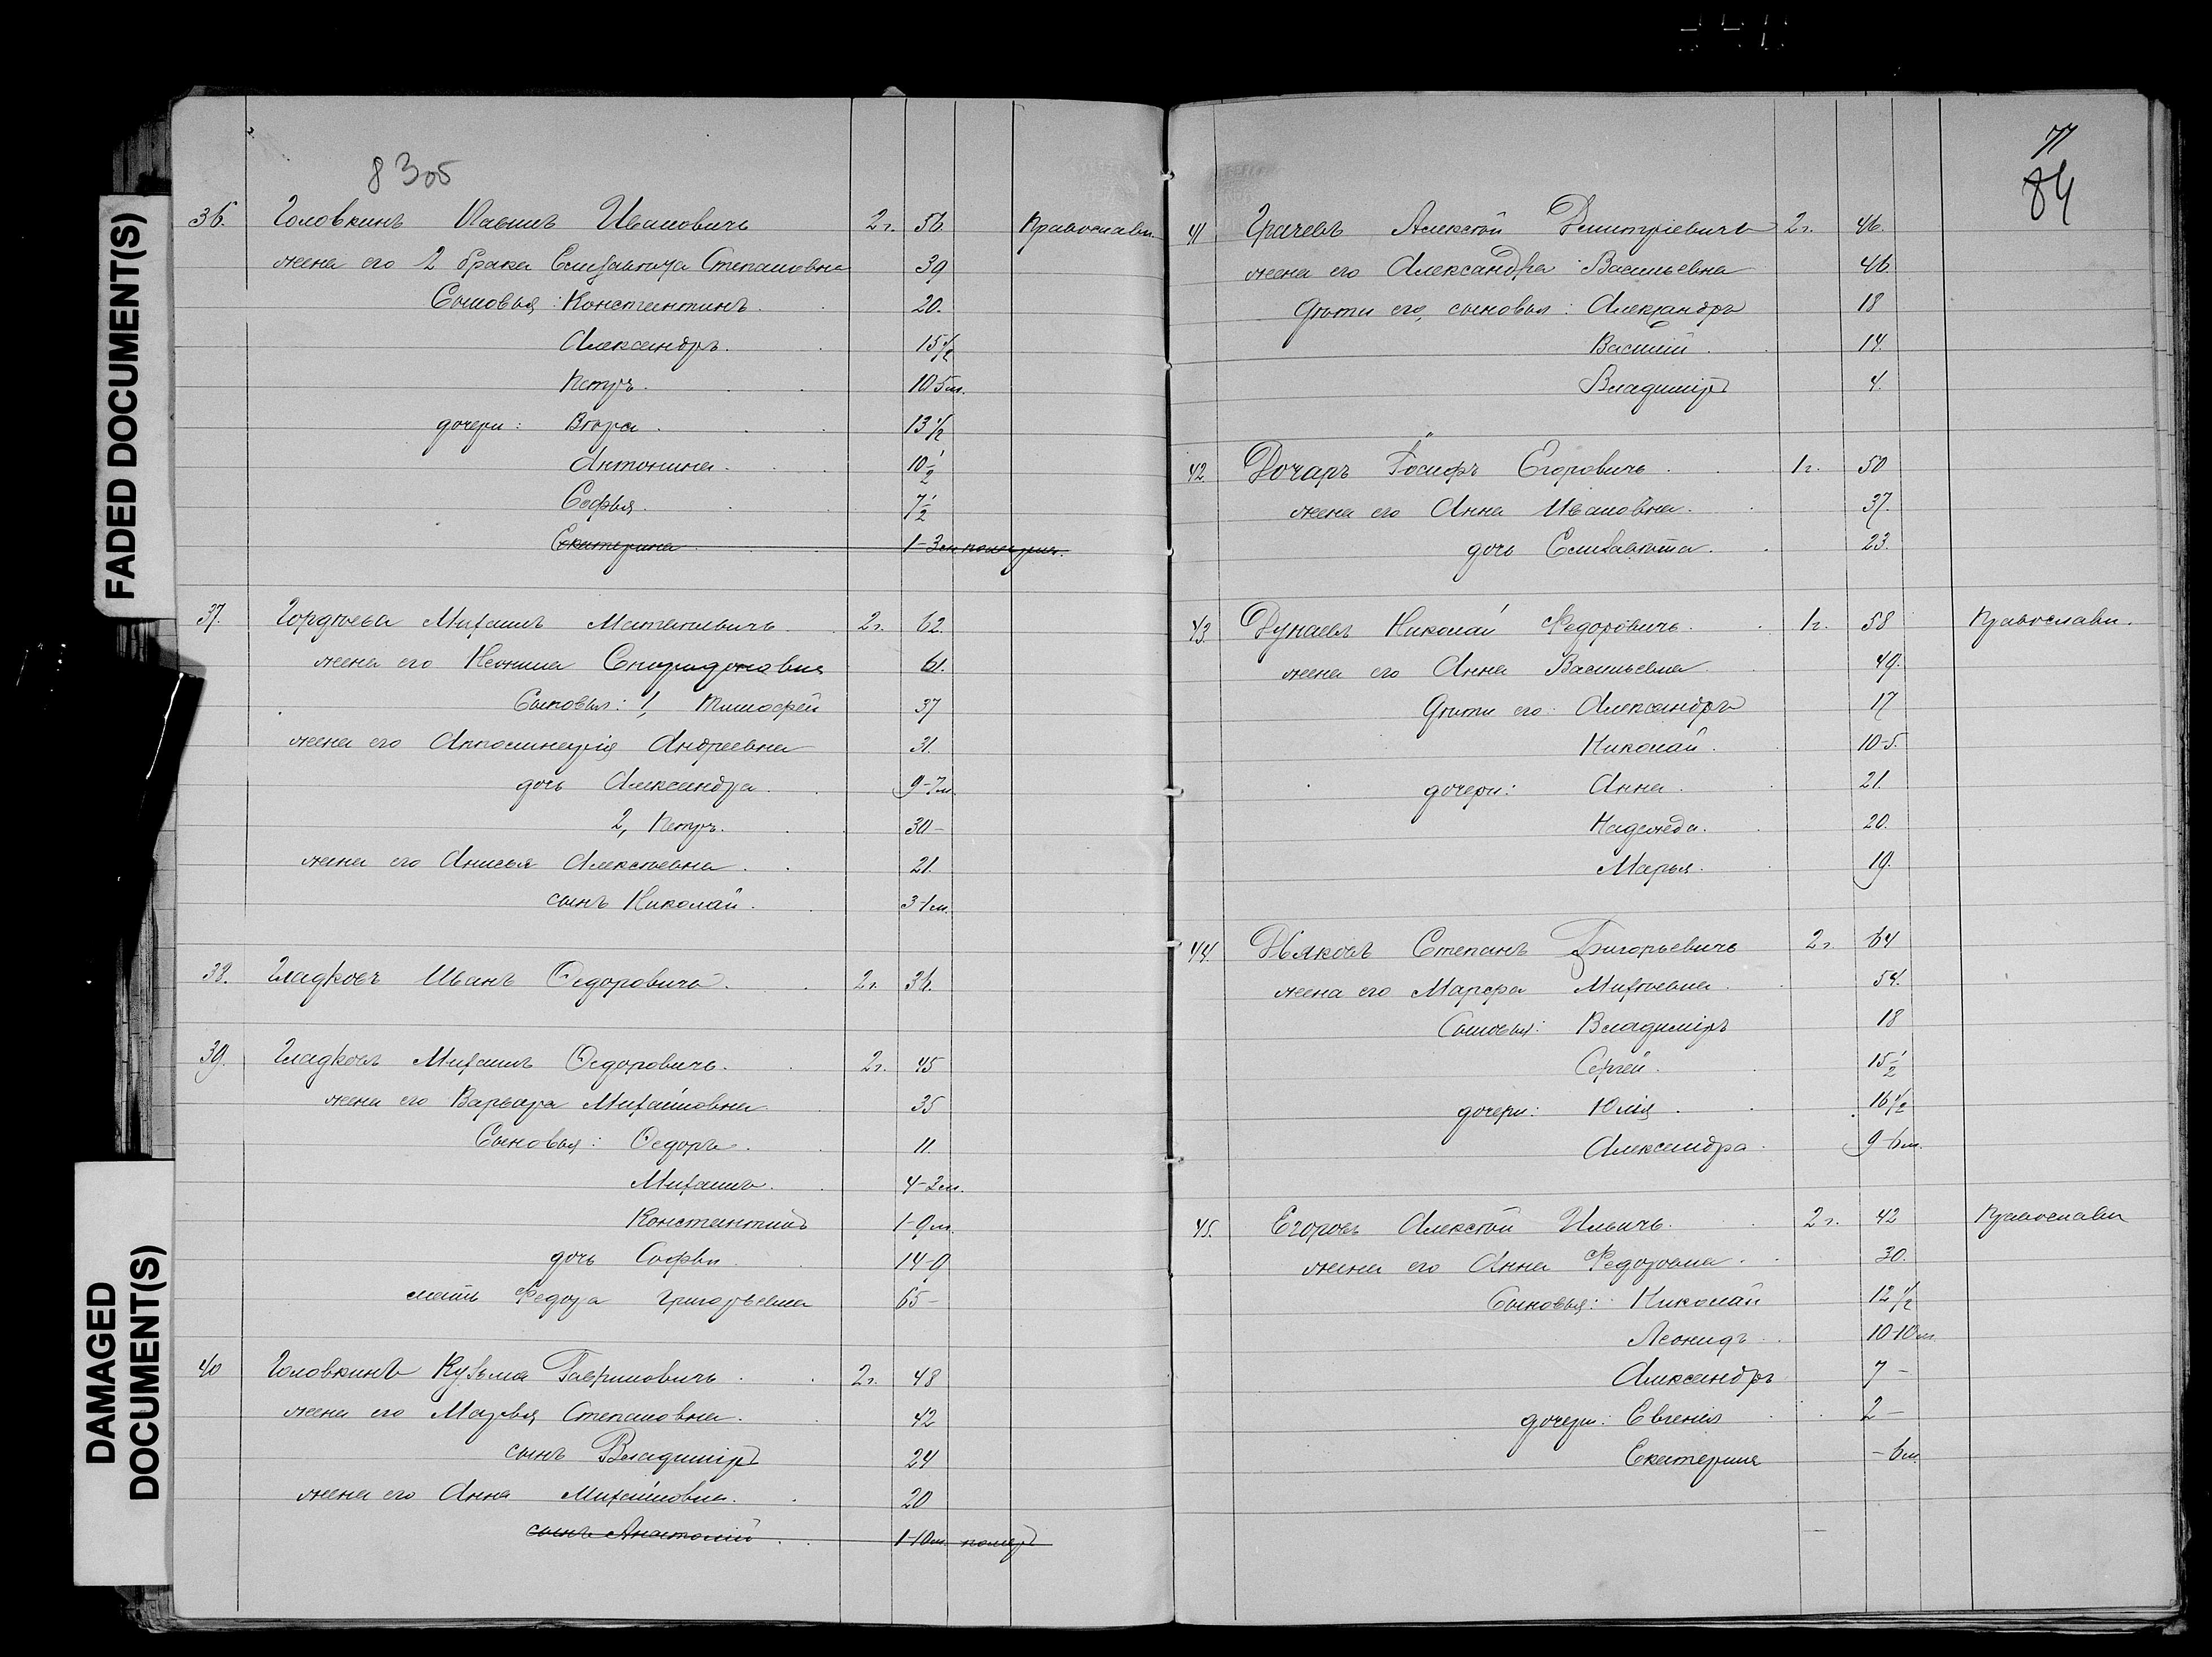 FADED DOCUMENT(S)
DAMAGED DOCUMENT(S)
83об
36. Головкинъ Павелъ Ивановичъ 2г. 56. Православн.
жена его 2 брака Елизавета Степановна 39
Сыновья: Константинъ 20.
Александръ. 15 1/2
Петръ. 10 5м.
дочери: Вѣра. 13 1/2
Антонина. 10 1/2
Софья. 7 1/2
Екатерина 1-3м померла.
37. Гордѣевъ Михаилъ Матвѣевичъ 2г. 62.
жена его Неонила Спиридоновна 61.
Сыновья: 1, Тимофей 37
жена его Апполинарія Андреевна 31.
дочь Александра. 9-7м.
2, Петръ. 30-
жена его Анисья Алексѣевна. 21.
сынъ Николай. 3-1м.
38. Гладковъ Иванъ Ѳедоровичъ. 2г. 36.
39. Гладковъ Михаилъ Ѳедоровичъ. 2г. 45
жена его Варвара Михайловна 35
Сыновья: Ѳедоръ. 11.
Михаилъ. 4-3м.
Константинъ 1-9м.
дочь Софья 14-9
мать Федора Григорьевна 65-
40 Головкинъ Кузьма Гавриловичъ 2г. 48
жена его Марья Степановна. 42
сынъ Владиміръ 24
жена его Анна Михайловна. 20
сынъ Анатолій 1-10м. померъ
77
84
41 Грачевъ Алексѣй Дмитріевичъ 2г. 46.
жена его Александра Васильевна 46
Дѣти его, сыновья: Александръ 18
Василій 14.
Владиміръ 4.
42. Дочаръ Іосифъ Егоровичъ 1г. 50
жена его Анна Ивановна. 37.
дочь Елизавета. 23.
43. Дунаевъ Николай Федоровичъ. 1г. 58 Православн.
жена его Анна Васильевна 49.
Дѣти его: Александръ 17
Николай. 10-5.
дочери: Анна. 21.
Надежда. 20.
Марья. 19.
44. Дьяковъ Степанъ Григорьевичъ 2г. 64
жена его Марфа Михѣевна. 54.
Сыновья: Владиміръ 18
Сергѣй. 15 1/2
дочери: Юлія 16 1/2
Александра 9-6м.
45. Егоровъ Алексѣй Ильичъ. 2г. 42 Православн
жена его Анна Федоровна. 30.
Сыновья: Николай 12 1/2
Леонидъ 10-10м
Александръ 7 -
дочери: Евгенія 2 -
Екатерина - 6м